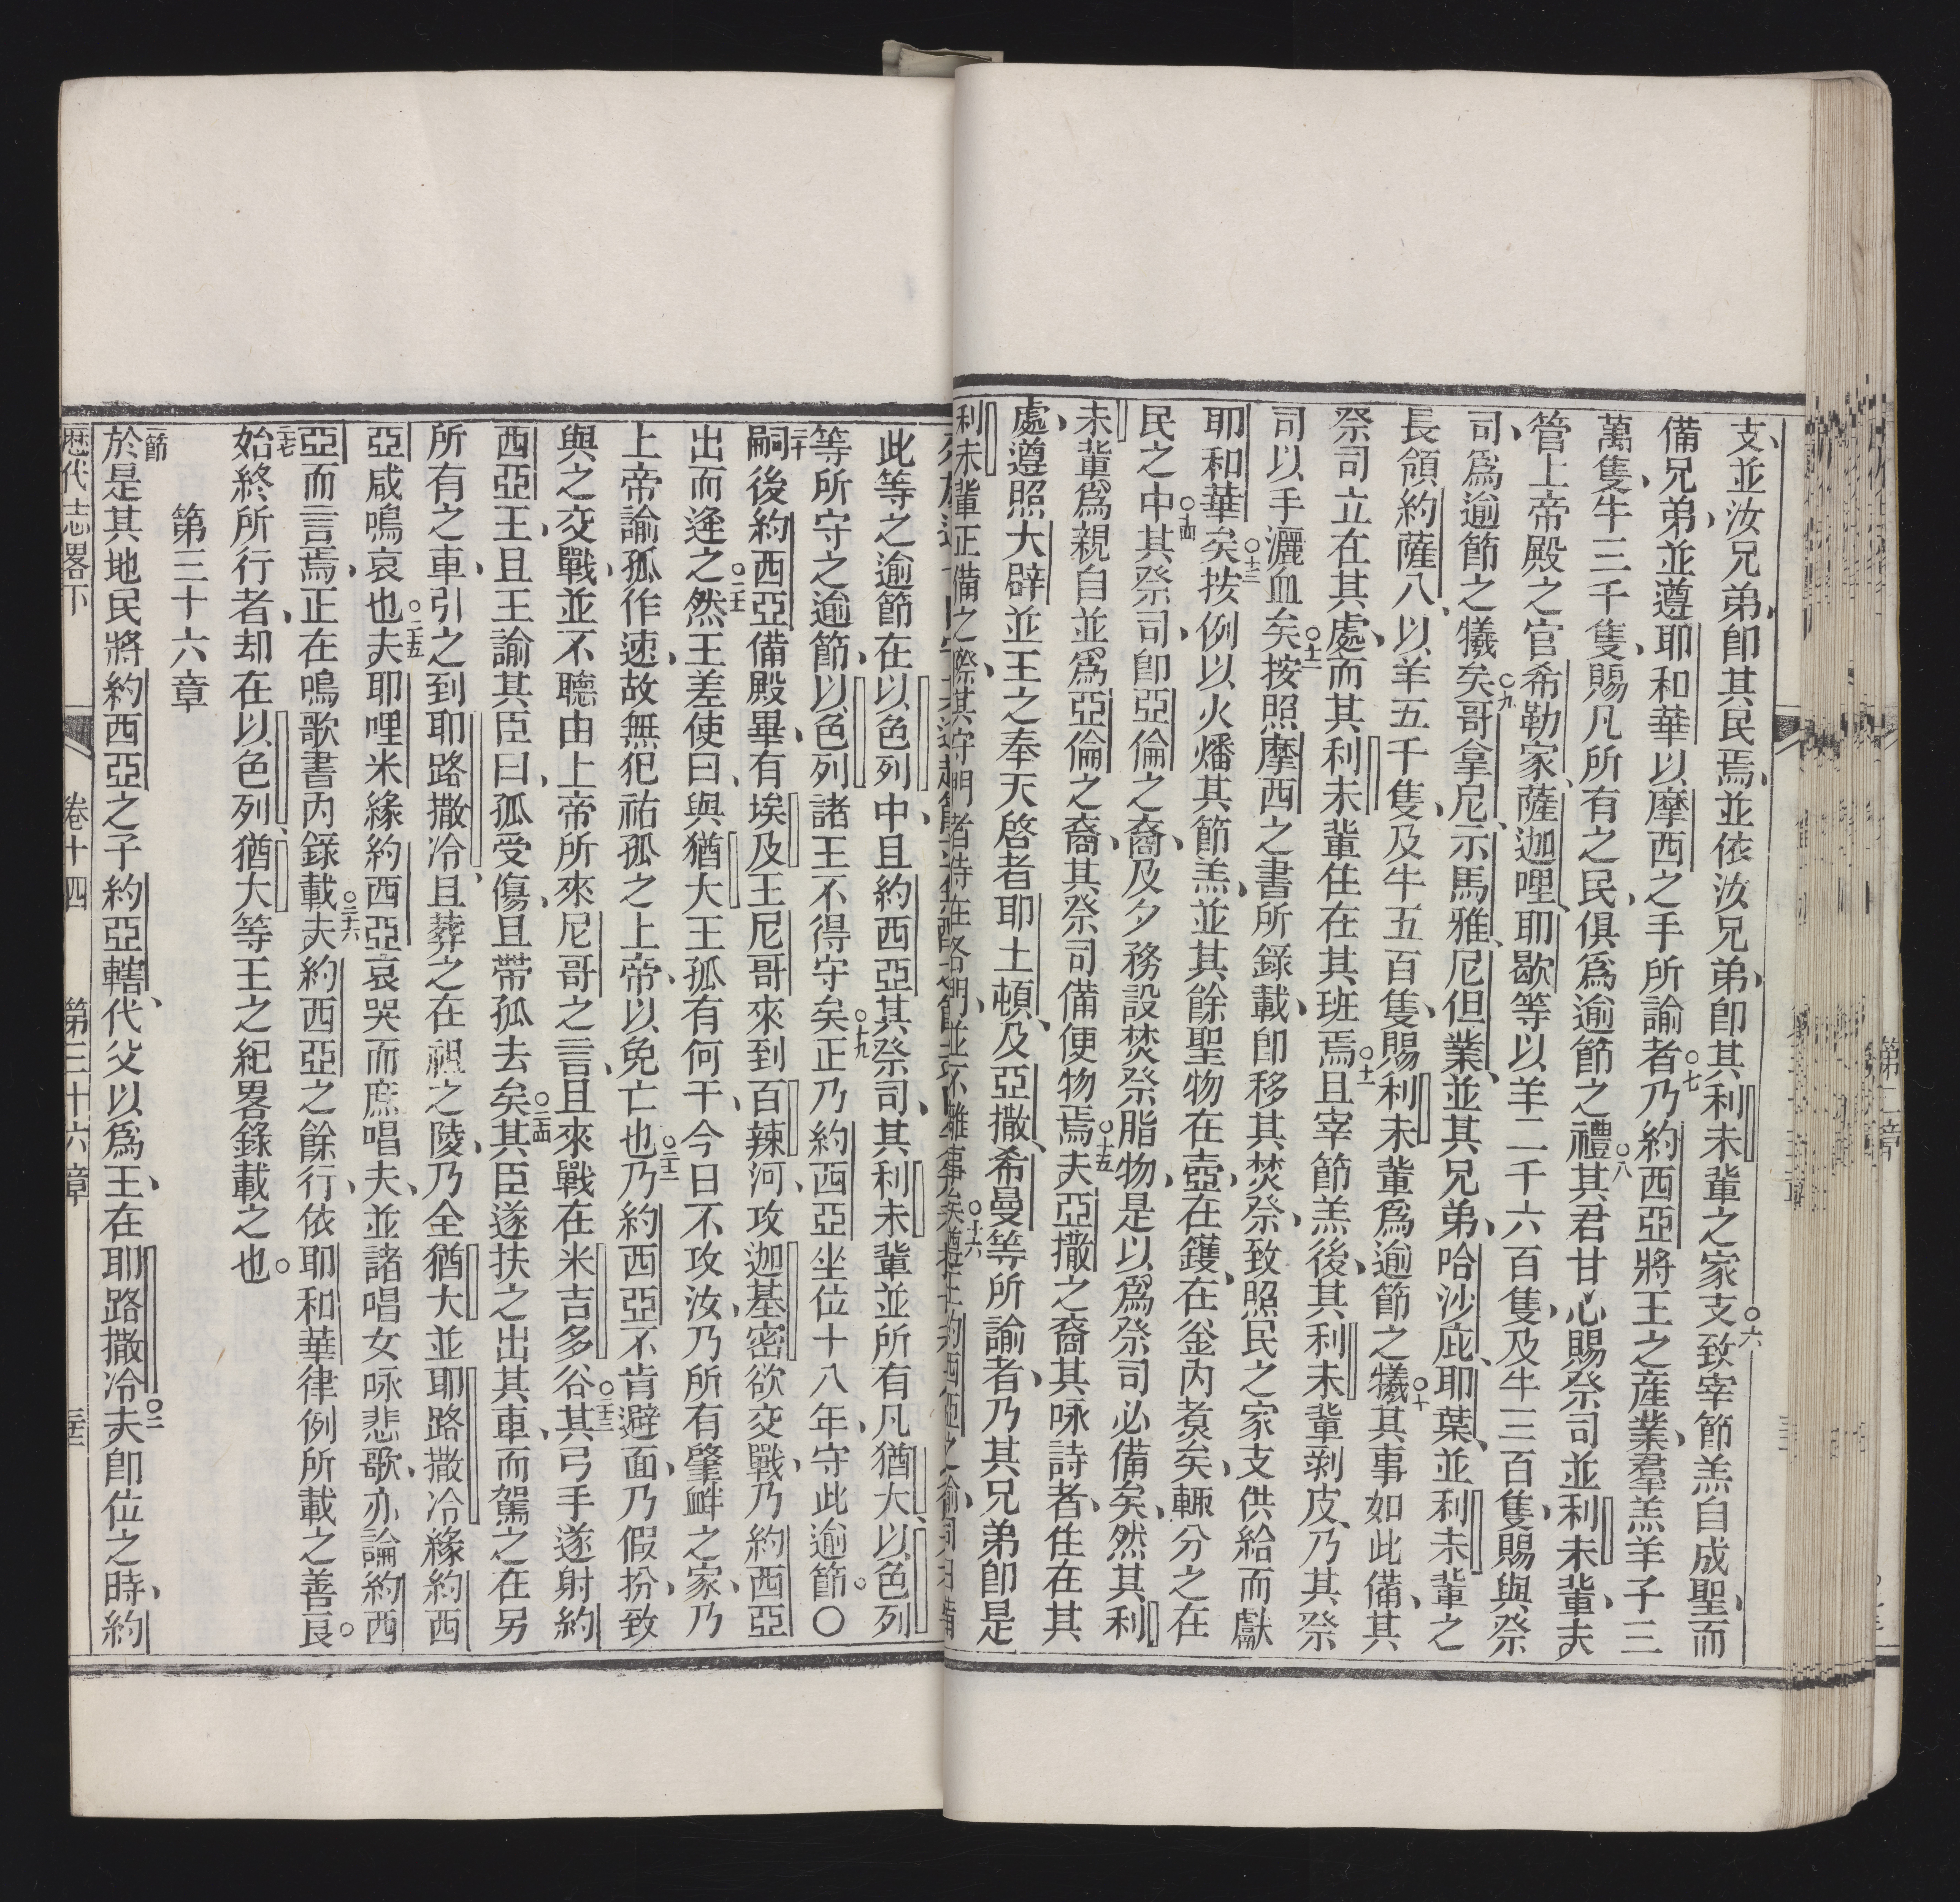 支、並汝兄弟、即其民焉、並依汝兄弟、即其利未輩之家支○六致宰節羔自成聖、而
備兄弟、並遵耶和華以摩西之手所諭者○七乃約西亞將王之產業、羣羔羊子三
萬隻、牛三千隻、賜凡所有之民、俱爲逾節之禮○八其君甘心賜祭司並利未輩、夫
管上帝殿之官希勒家、薩迦哩、耶歇等以羊二千六百隻、及牛三百隻、賜與祭
司、爲逾節之犧矣○九哥拿尼、示馬雅、尼但業、並其兄弟、哈沙庇、耶葉、並利未輩之
長領約薩八、以羊五千隻、及牛五百隻、賜利未輩爲逾節之犧○十其事如此備、其
祭司立在其處、而其利未輩住在其班焉○十一且宰節羔後、其利未輩剝皮、乃其祭
司以手灑血矣○十二按照摩西之書所錄載、即移其焚祭、致照民之家支供給而獻
耶和華矣○十三按例以火燔其節羔、並其餘聖物在壺、在鑊、在釜内煑矣、輒分之在
民之中○十四其祭司、即亞倫之裔、及夕務設焚祭脂物、是以爲祭司必備矣、然其利
未輩爲親自並爲亞倫之裔、其祭司備便物焉○十五夫亞撒之裔其咏詩者、住在其
處、遵照大辟並王之奉天啓者耶土頓、及亞撒、希曼等所諭者、乃其兄弟即是
利未輩正備之際、其守門者待在各門、並不離事矣○十六
此等之逾節在以色列中、且約西亞其祭司、其利未輩並所有凡猶大、以色列
等所守之逾節、以色列諸王不得守矣○十九正乃約西亞坐位十八年、守此逾節。○
二十嗣後約西亞備殿畢、有埃及王尼哥來到百辣河、攻迦基密欲交戰、乃約西亞
出而逢之○二十一然王差使曰、與猶大王孤有何干、今日不攻汝、乃所有肇衅之家、乃
上帝諭孤作速、故無犯祐孤之上帝、以免亡也○二十二乃約西亞不肯避面、乃假扮、致
與之交戰、並不聽由上帝所來尼哥之言、且來戰在米吉多谷○二十三其弓手遂射約
西亞王、且王諭其臣曰、孤受傷、且帶孤去矣○二十四其臣遂扶之出其車、而駕之在另
所有之車、引之到耶路撒冷、且葬之在祖之陵、乃全猶大並耶路撒冷緣約西
亞咸鳴哀也○二十五夫耶哩米緣約西亞哀哭、而庶唱夫、並諸唱女咏悲歌、亦論約西
亞而言焉、正在鳴歌書内錄載○二十六夫約西亞之餘行、依耶和華律例所載之善良。
二十七始終所行者、却在以色列、猶大等王之紀畧錄載之也。
第三十六章
一節於是其地民將約西亞之子約亞轄、代父以爲王、在耶路撒冷○二夫即位之時、約
歷代志畧下 卷十四 第三十六章